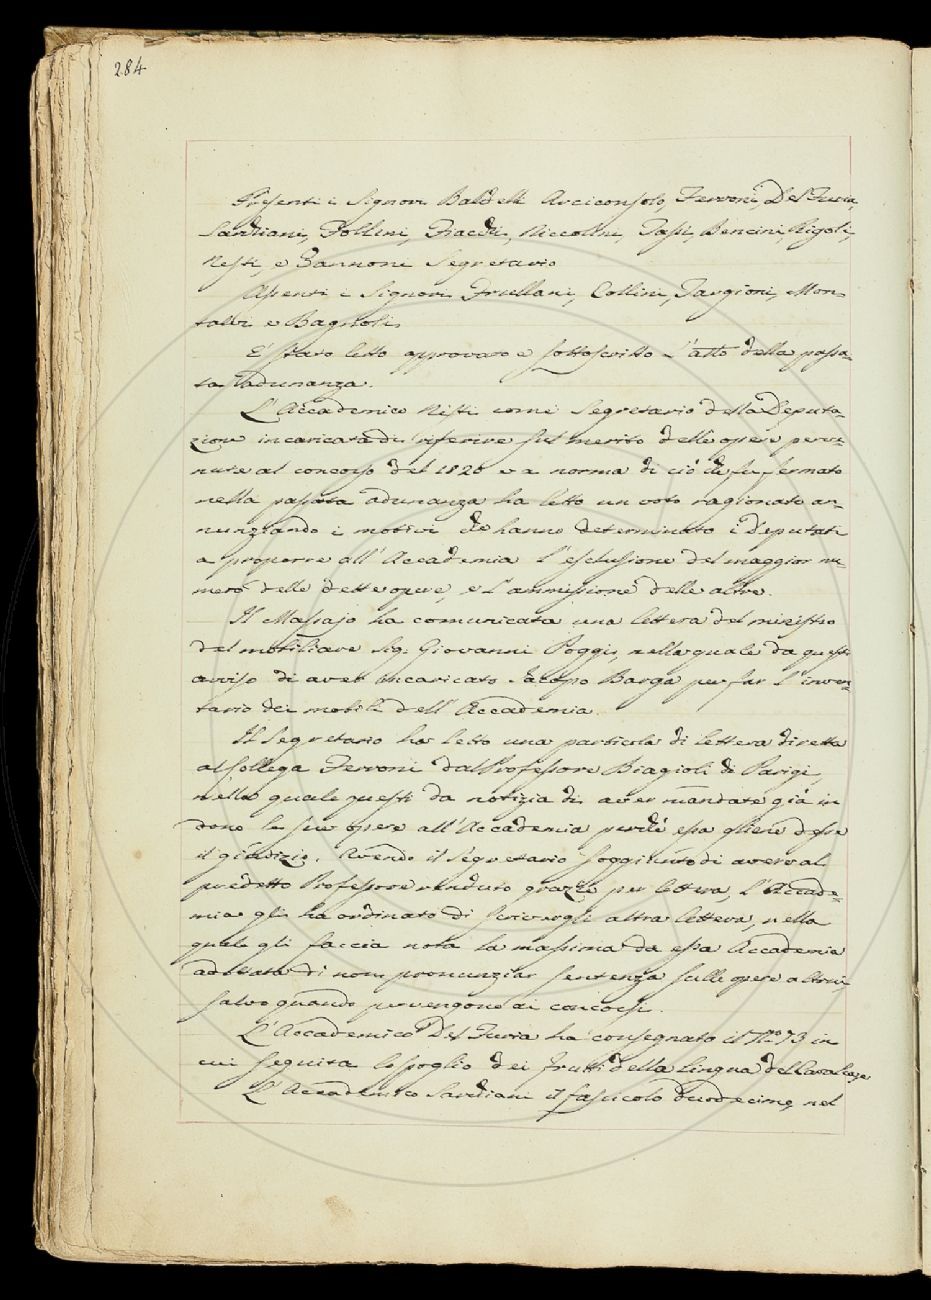 284
Presenti i Signori Baldelli Arciconsolo, Ferroni, Del Furia,
Sarchiani, Follini, Fiacchi, Niccolini, Tassi, Bencini, Rigoli,
Nesti, e Zannoni Segretario
Assenti i Signori Frullani, Collini, Targioni, Mon-
talvi e Bagnoli.
E' stato letto approvato e sottoscritto l'atto della passa-
ta adunanza.
L'Accademico Nesti come Segretario della Deputa-
zione incaricata di riferire sul merito delle opere perve-
nute al concorso del 1820 e a norma di ciò che fu fermato
nella passata adunanza ha letto un voto ragionato an-
nunziando i motivi che hanno determinato i Deputati
a proporre all'Accademia l'esclusione del maggior nu-
mero delle dette opere, e l'ammissione delle altre.
Il Massajo ha comunicata una lettera del ministro
del mobiliare Sig. Giovanni Poggi, nella quale da questi
avviso di aver incaricato Jacopo Barga per far l'inven-
tario dei mobili dell'Accademia.
Il Segretario ha letto una particola di lettera diretta
al Collega Ferroni dal Professore Biagioli di Parigi,
nella quale questi da notizia di aver mandate già in
dono le sue opere all'Accademia perchè essa gliene desse
il giudizio. Avendo il Segretario soggiunto di avere al
predetto Professore renduto grazie per lettera, l'Accade-
mia gli ha ordinato di scrivergli altra lettera, nella
quale gli faccia nota la massima da essa Accademia
adottata di non pronunziar sentenza sulle opere altrui,
salvo quando pervengono ai concorsi.
L'Accademico Del Furia ha consegnato il N.o 73 in
cui seguita lo spoglio dei frutti della lingua del Cavalca, e
L'Accademico Sarchiani il fascicolo duodecimo, nel